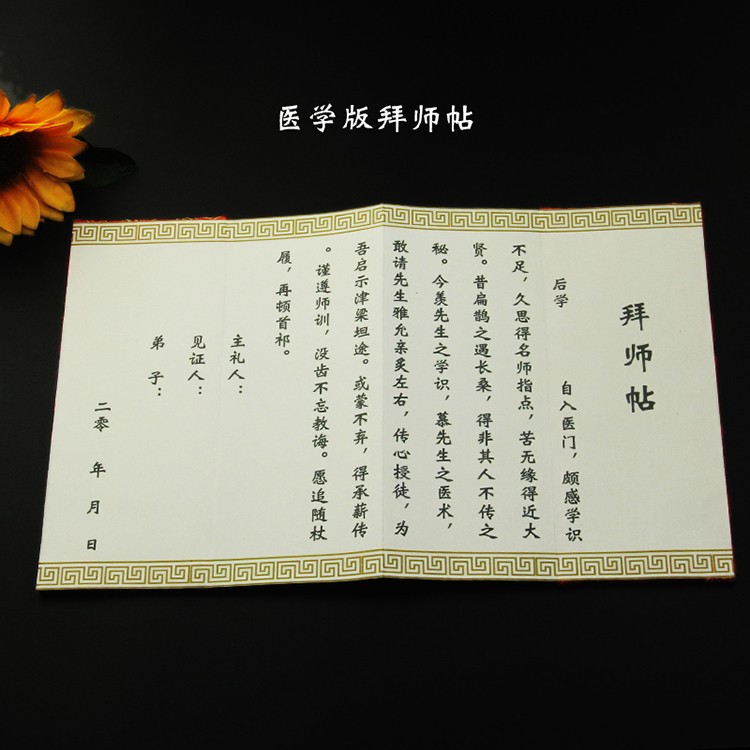 医学版拜师帖
拜师帖
后学 自入医门，颇感学识
不足，久思得名师指点，苦无缘得近大
贤。昔扁鹊之遇长桑，得非其人不传之
秘。今羡先生之学识，慕先生之医术，
敢请先生雅允亲炙左右，传心授徒，为
吾启示津梁坦途。或蒙不弃，得承薪传
。谨遵师训，没齿不忘教诲。愿追随杖
履，再顿首祁。
主礼人：
见证人：
弟 子：
二零 年 月 日